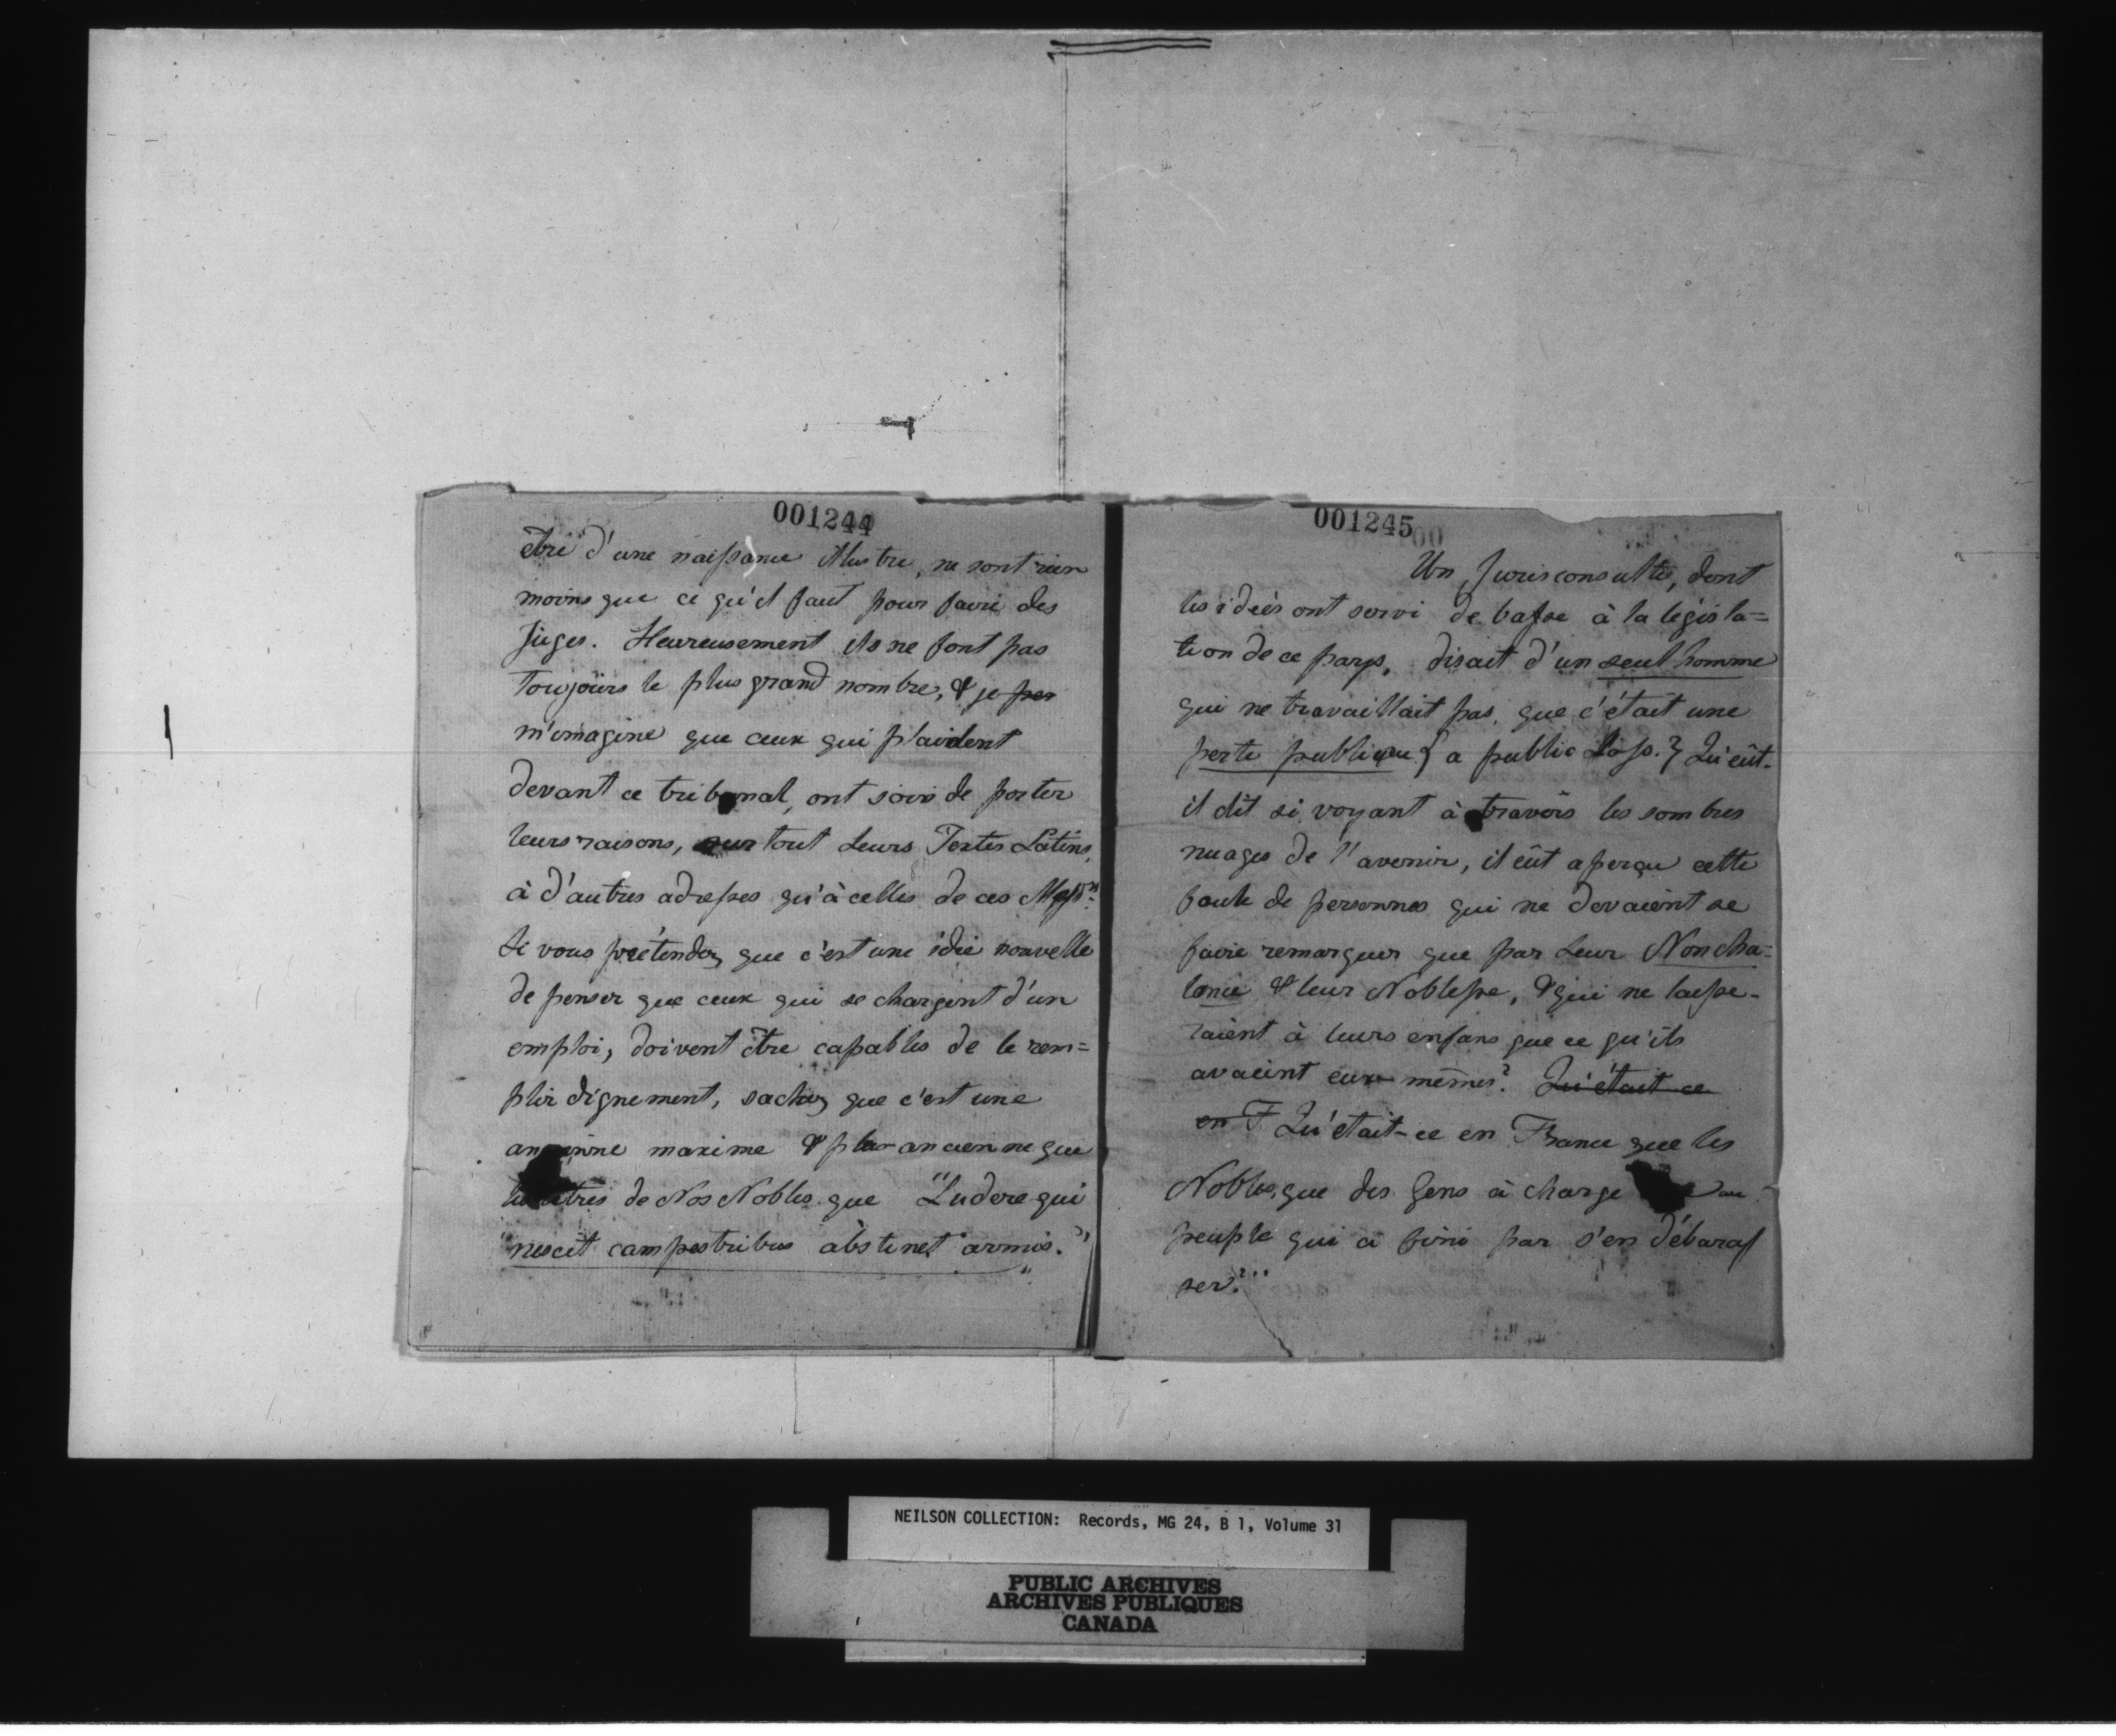 001244
être d'une naissance illustre, ne sont rien
moins que ce qu'il faut pour faire des
Juges. Heureusement ils ne font pas
Toujours le plus grand nombre, & je per
m'imagine que ceux qui plaident
devant ce tribunal, ont soin de porter
leurs raisons, sur tout leurs Textes Latins,
à d'autres adresses qu'à celles de ces Messrs.
Si vous prétendez que c'est une idée nouvelle
de penser que ceux qui se chargent d'un
emploi, doivent être capables de le rem=
plir dignement, sachez que c'est une
ancienne maxime & plus ancienne que
les titres de Nos Nobles que "Ludere qui
"nescit campestribus abstinet armis."
001245
Un Jurisconsulte, dont
les idées ont servi de basse à la législa=
tion de ce pays, disait d'un seul homme
qui ne travaillait pas, que c'était une
perte publique { a public Loss. } Qu'eût-
il dit si voyant à travers les sombres
nuages de l'avenir, il eût aperçu cette
foule de personnes qui ne devaient se
faire remarquer que par leur Noncha=
lance & leur Noblesse, & qui ne laisse-
raient à leurs enfans que ce qu'ils
avaient eux-mêmes? Qu'était ce
en F Qu'était-ce en France que les
Nobles, que des Gens à charge au
peuple qui a fini par s'en débaras
ser?
NEILSON COLLECTION: Records, MG 24, B 1, Volume 31
PUBLIC ARCHIVES
ARCHIVES PUBLIQUES
CANADA